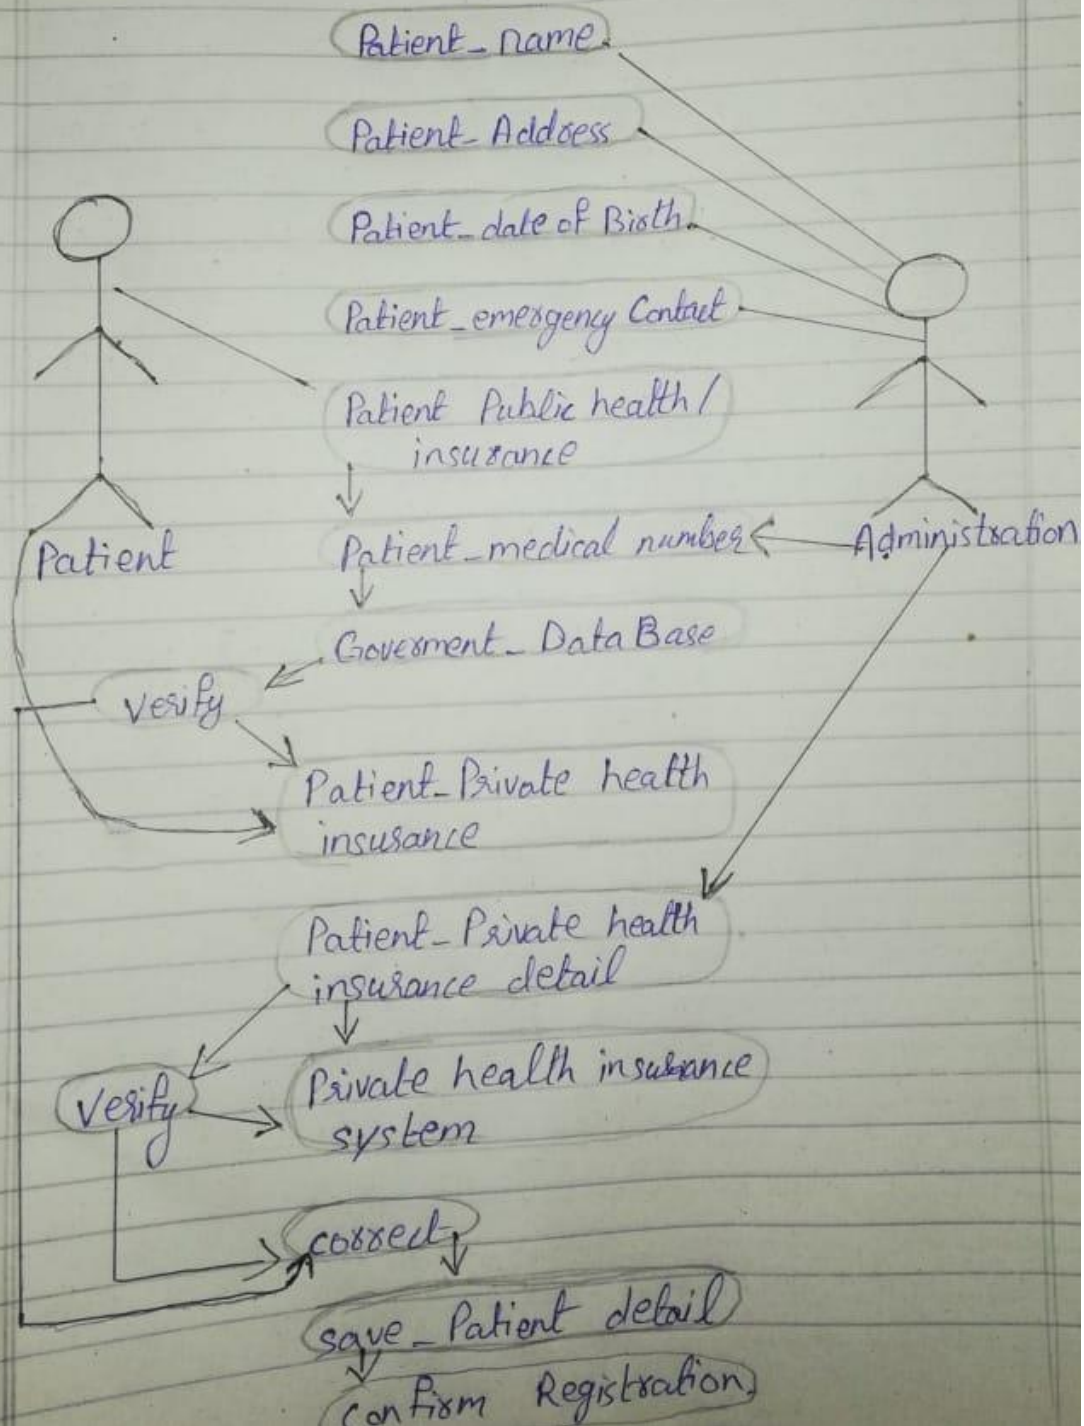 Patient_name
Patient_Address
Patient_date of Birth
Patient_emergency Contact
Patient Public health/
insurance
Patient
Patient_medical number
Administration
Goverment_DataBase
Verify
Patient_Private health
insurance
Patient_Private health
insurance detail
Verify
Private health insurance
system
correct
save_Patient detail
confirm Registration